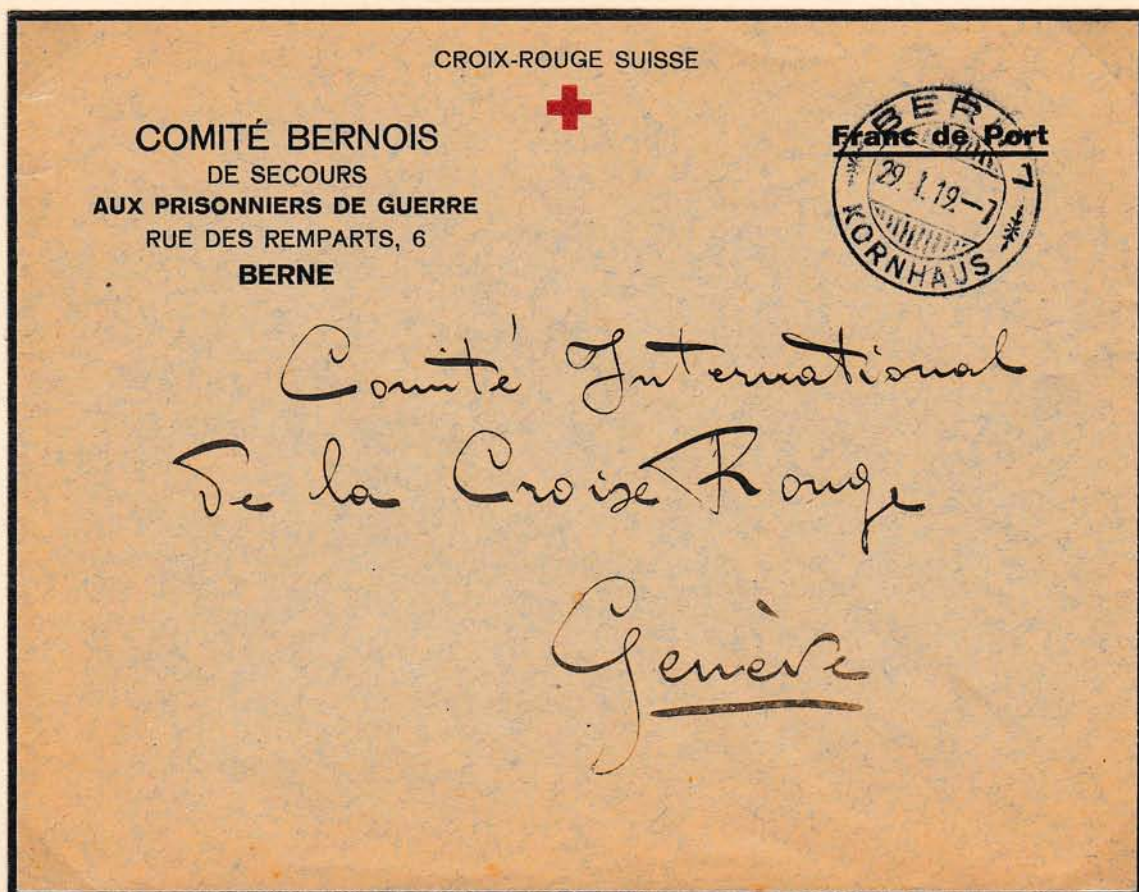 CROIX-ROUGE SUISSE
COMITÉ BERNOIS
DE SECOURS
AUX PRISONNIERS DE GUERRE
RUE DES REMPARTS, 6
BERNE
Franc de Port
BERN 7
29. I. 19.—7
KORNHAUS
Comité International
De la Croix Rouge
Genève